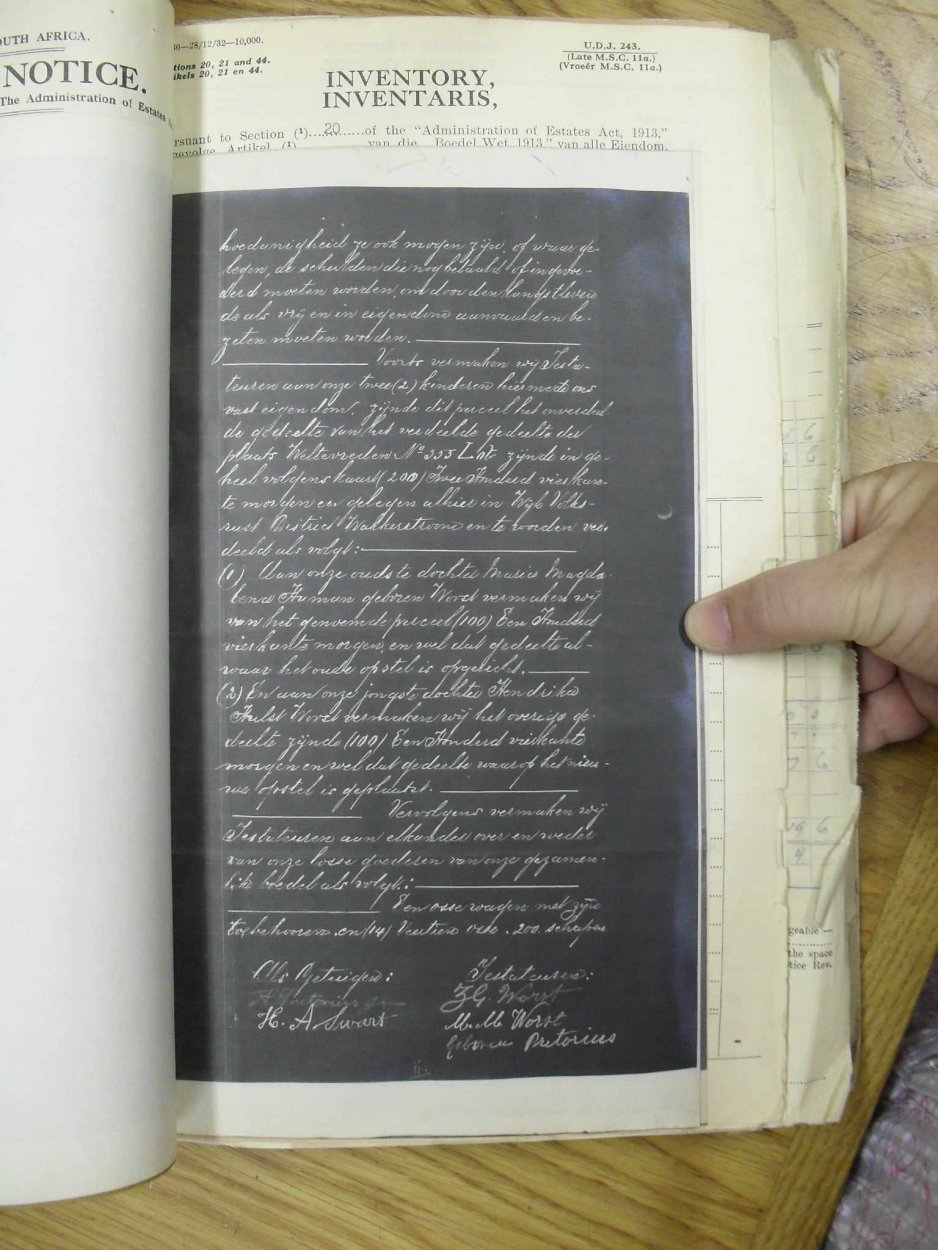 OUTH AFRICA.
NOTICE.
The Administration of Estates
36—28/12/32—10,000.
tions 20, 21 and 44.
ikels 20, 21 en 44.
U.D.J. 243.
(Late M.S.C. 11a.)
(Vroeër M.S.C. 11a.)
INVENTORY,
INVENTARIS,
rsuant to Section (1)....20.....of the "Administration of Estates Act, 1913,"
gevolge Artikel (1) van die „Boedel Wet, 1913," van alle Eiendom,
hoedanigheid ze ook mogen zijn, of waar ge-
legen, de schulden die nog betaald of ingevor-
derd moeten worden, om door den langstleven
de als vrij en in eigendom aanvaard en be-
zeten moeten worden.
Voorts vermaken wij Testa-
teuren aan onze twee (2) kinderen hiermede ons
vast eigendom, zijnde dit perceel het onverdeel
de gedeelte van het verdeelde gedeelte der
plaats Weltevreden No 355 Lot zijnde in ge-
heel volgens kaart (200) Twee Honderd vierkan-
te morgen en gelegen alhier in Wijk Volks-
rust District Wakkerstroom en te worden ver-
deeld als volgt:
(1) Aan onze oudste dochter Maria Magda-
lena Human geboren Worst vermaken wij
van het genoemde perceel (100) Een Honderd
vierkante morgen, en wel dat gedeelte al-
waar het oude opstel is opgericht.
(2) En aan onze jongste dochter Hendrika
Hulst Worst vermaken wij het overige ge-
deelte zijnde (100) Een Honderd vierkante
morgen en wel dat gedeelte waarop het nieu-
we opstel is geplaatst.
Vervolgens vermaken wij
Testateuren aan elkander over en weder
van onze losse goederen van onze gezamen-
lik boedel als volgt:
Een osse wagen met zijn
toebehooren en (14) Veertien osse. 200 schapen
Als Getuigen:
Testateuren:
Z G. Worst
H. A Swart
M. M. Worst
geboren Pretorius
geable:—
the space
tice Rev.